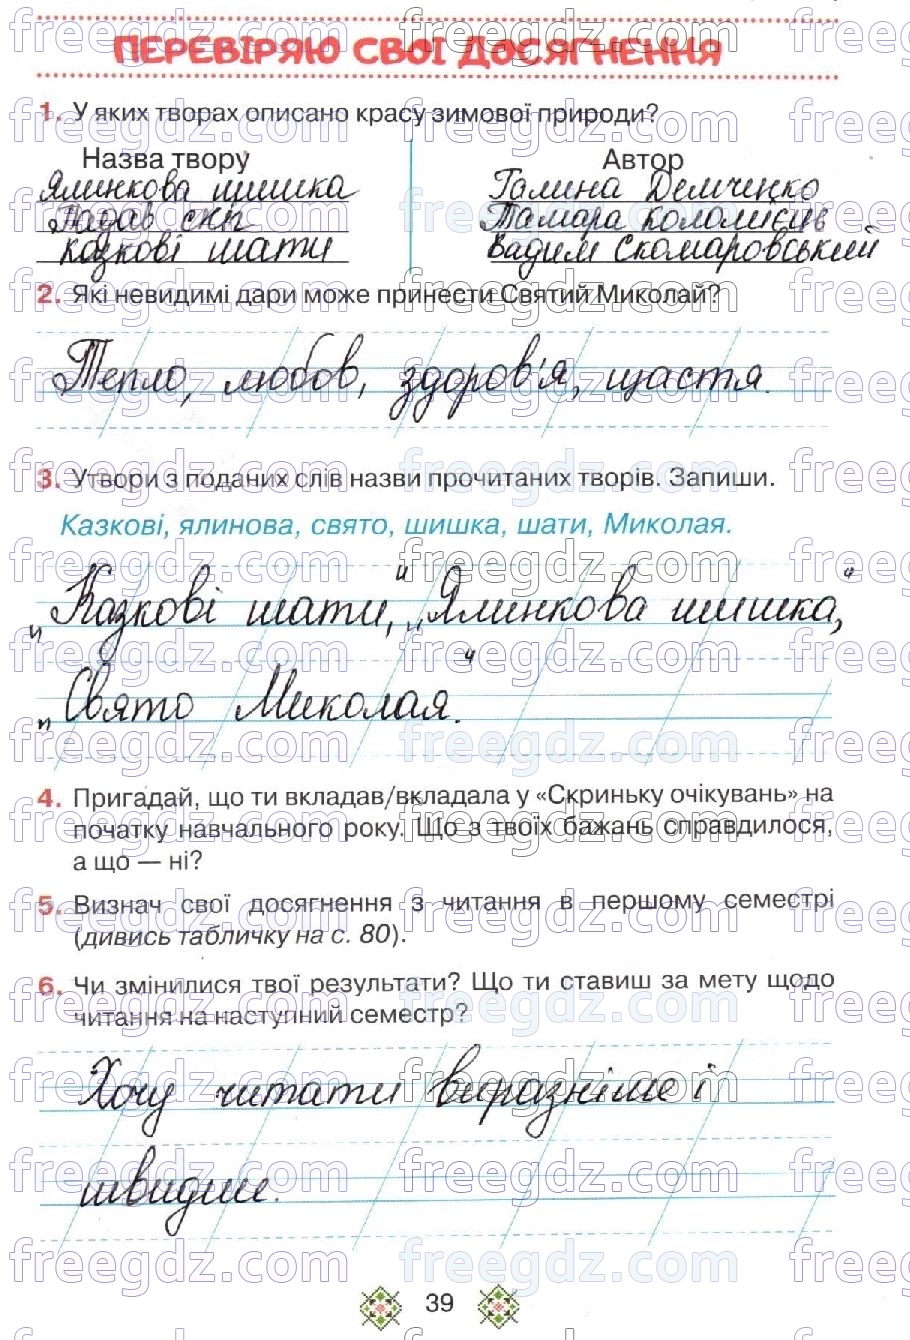 ПЕРЕВІРЯЮ СВОЇ ДОСЯГНЕННЯ
1. У яких творах описано красу зимової природи?
Назва твору Автор
Ялинкова шишка Галина Демченко
Падав сніг Тамара Коломієць
Казкові шати Вадим Скомаровський
2. Які невидимі дари може принести Святий Миколай?
Тепло, любов, здоров'я, щастя.
3. Утвори з поданих слів назви прочитаних творів. Запиши.
Казкові, ялинова, свято, шишка, шати, Миколая.
„Казкові шати", „Ялинкова шишка",
„Свято Миколая".
4. Пригадай, що ти вкладав/вкладала у «Скриньку очікувань» на
початку навчального року. Що з твоїх бажань справдилося,
а що — ні?
5. Визнач свої досягнення з читання в першому семестрі
(дивись табличку на с. 80).
6. Чи змінилися твої результати? Що ти ставиш за мету щодо
читання на наступний семестр?
Хочу читати виразніше і
швидше.
39
freegdz.com